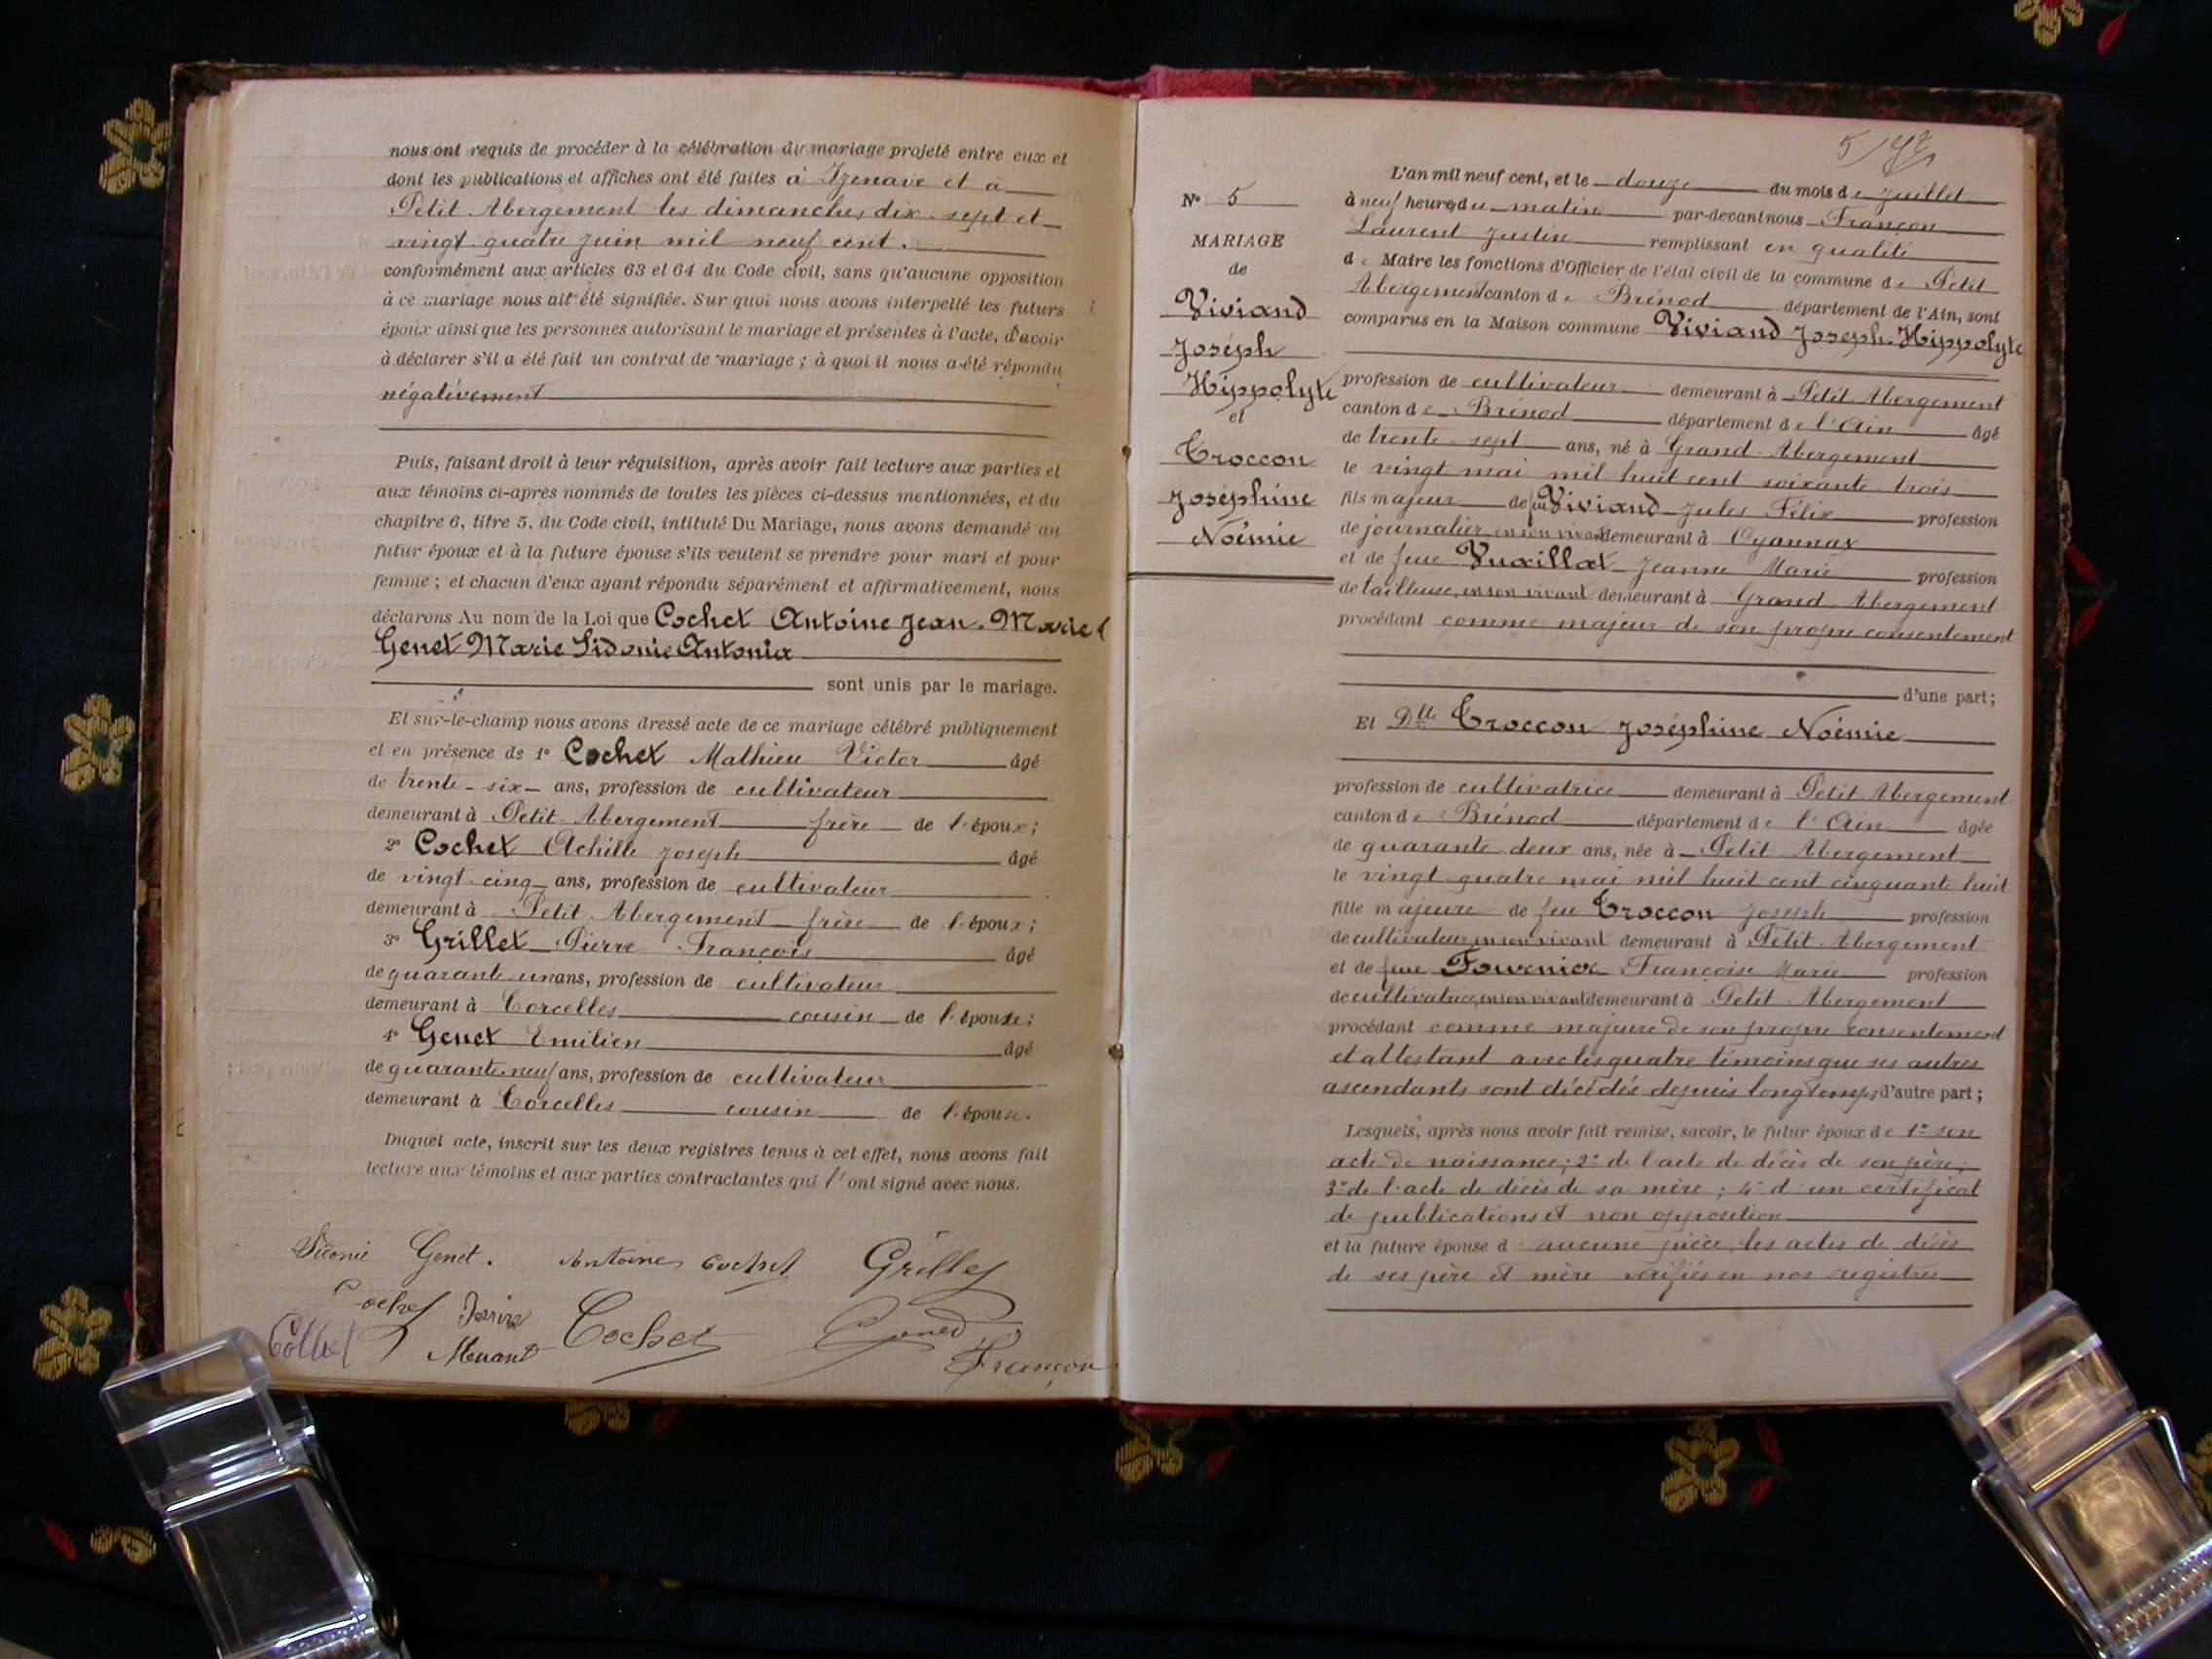 nous ont requis de procéder à la célébration du mariage projeté entre eux et
dont les publications et affiches ont été faites à Izenave et à
Petit Abergement les dimanches dix-sept et
vingt-quatre juin mil neuf cent.
conformément aux articles 63 et 64 du Code civil, sans qu'aucune opposition
à ce mariage nous ait été signifiée. Sur quoi nous avons interpellé les futurs
époux ainsi que les personnes autorisant le mariage et présentes à l'acte, d'avoir
à déclarer s'il a été fait un contrat de mariage ; à quoi il nous a été répondu
négativement
Puis, faisant droit à leur réquisition, après avoir fait lecture aux parties et
aux témoins ci-après nommés de toutes les pièces ci-dessus mentionnées, et du
chapitre 6, titre 5, du Code civil, intitulé Du Mariage, nous avons demandé au
futur époux et à la future épouse s'ils veulent se prendre pour mari et pour
femme ; et chacun d'eux ayant répondu séparément et affirmativement, nous
déclarons Au nom de la Loi que Cochet Antoine Jean-Marie &
Genet Marie Sidonie Antonia
sont unis par le mariage.
Et sur-le-champ nous avons dressé acte de ce mariage célébré publiquement
et en présence de 1° Cochet Mathieu Victor âgé
de trente-six ans, profession de cultivateur
demeurant à Petit Abergement frère de l'époux ;
2° Cochet Achille Joseph âgé
de vingt-cinq ans, profession de cultivateur
demeurant à Petit Abergement frère de l'époux ;
3° Grillet Pierre François âgé
de quarante un ans, profession de cultivateur
demeurant à Corcelles cousin de l'épouse ;
4° Genet Emilien âgé
de quarante-neuf ans, profession de cultivateur
demeurant à Corcelles cousin de l'épouse.
Duquel acte, inscrit sur les deux registres tenus à cet effet, nous avons fait
lecture aux témoins et aux parties contractantes qui l'ont signé avec nous.
Sidonie Genet. Antoine Cochet Grillet
Cochet
Cochet Cochet Genet
Françon
5
L'an mil neuf cent, et le douze du mois de Juillet
N° 5
à neuf heures du matin par-devant nous Françon
Laurent Justin remplissant en qualité
MARIAGE
de
de Maire les fonctions d'Officier de l'état civil de la commune de Petit
Abergement canton de Brénod département de l'Ain, sont
comparus en la Maison commune Viviand Joseph-Hippolyte
Viviand
Joseph
Hippolyte
et
Troccon
Joséphine
Noémie
profession de cultivateur demeurant à Petit Abergement
canton de Brénod département de l'Ain âgé
de trente-sept ans, né à Grand-Abergement
le vingt mai mil huit cent soixante trois
fils majeur de feu Viviand Jules Félix profession
de journalier, en son vivant demeurant à Oyonnax
et de feue Vuaillat Jeanne Marie profession
de tailleuse, en son vivant demeurant à Grand-Abergement
procédant comme majeur de son propre consentement
d'une part ;
Et Dlle Troccon Joséphine Noémie
profession de cultivatrice demeurant à Petit Abergement
canton de Brénod département de l'Ain âgée
de quarante-deux ans, née à Petit Abergement
le vingt-quatre mai mil huit cent cinquante huit
fille majeure de feu Troccon Joseph profession
de cultivateur en son vivant demeurant à Petit Abergement
et de feue Fournier Françoise Marie profession
de cultivatrice, en son vivant demeurant à Petit Abergement
procédant comme majeure de son propre consentement
et attestant avec les quatre témoins que ses autres
ascendants sont décédés depuis longtemps, d'autre part ;
Lesquels, après nous avoir fait remise, savoir, le futur époux de 1° son
acte de naissance ; 2° de l'acte de décès de son père ;
3° de l'acte de décès de sa mère ; 4° d'un certificat
de publications et non opposition
et la future épouse d'aucune pièce, les actes de décès
de ses père et mère vérifiés en nos registres